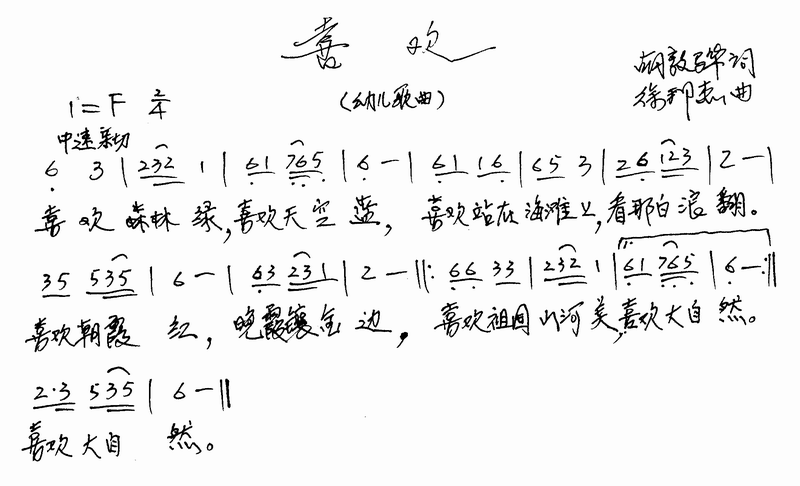 喜欢
(幼儿歌曲)
胡敦骅词
徐邦杰曲
1=F 2/4
中速亲切
6 3 | 232 1 | 61 765 | 6 — | 61 16 | 65 3 | 26 123 | 2 — |
喜欢森林绿,喜欢天空蓝, 喜欢站在海滩上,看那白浪翻。
35 535 | 6 — | 63 231 | 2 — ‖: 66 33 | 232 1 | 61 765 | 6 — :‖
喜欢朝霞红, 晚霞镶金边, 喜欢祖国山河美,喜欢大自然。
2·3 535 | 6 — ‖
喜欢大自然。